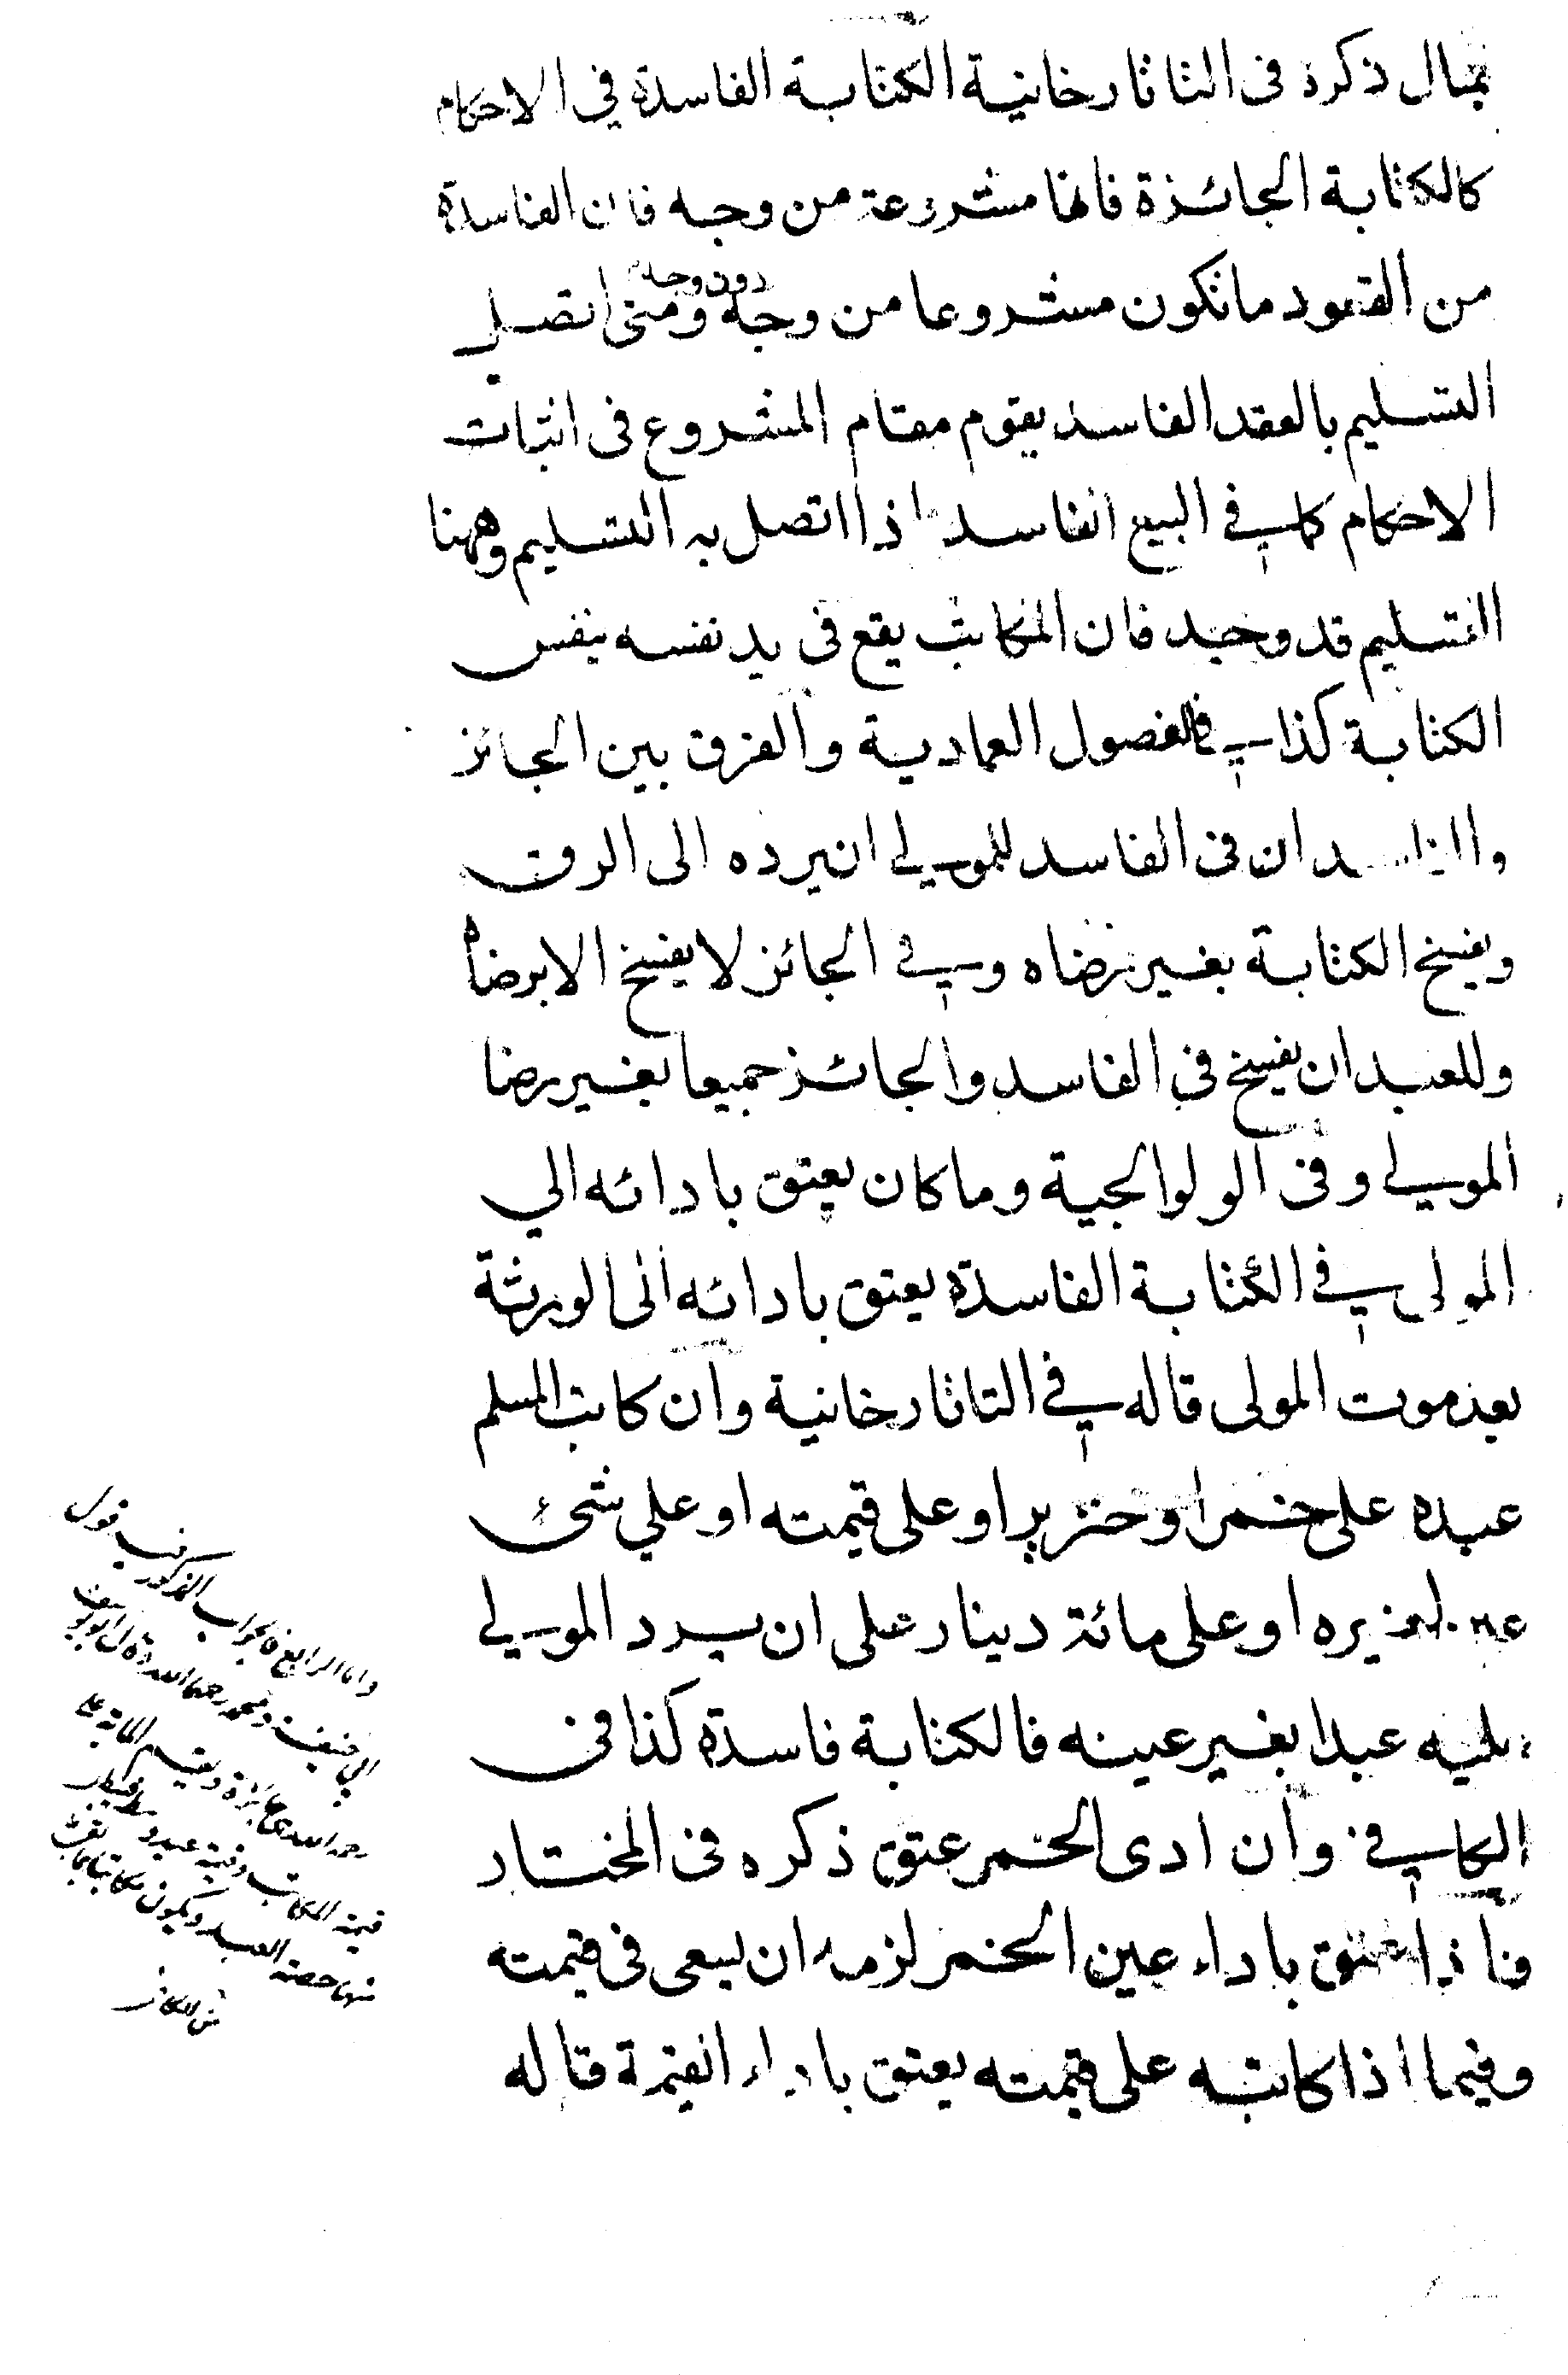 بمال ذكره فى التاتارخانية الكتابة الفاسدة فى الاحكام
كالكتابة الجائزة فانها مشروعة من وجه فان الفاسدة
من العقود ما تكون مشروعا من وجه دون وجه ومتى اتصل
التسليم بالعقد الفاسد يقوم مقام المشروع فى اثبات
الاحكام كما فى البيع الفاسد اذا اتصل به التسليم وههنا
التسليم قد وجد فان المكاتب يقع فى يد نفسه بنفس
الكتابة كذا فى الفصول العمادية والفرق بين الجائز
والفاسد ان فى الفاسد للمولى ان يرده الى الرق
ويفسخ الكتابة بغير رضاه وفى الجائز لا يفسخ الا برضاه
وللعبد ان يفسخ فى الفاسد والجائز جميعا بغير رضا
المولى وفى الولوالجية وما كان يعتق بادائه الى
المولى فى الكتابة الفاسدة يعتق بادائه الى الورثة
بعد موت المولى قاله فى التاتارخانية وان كاتب المسلم
عبده على خمر او خنزير او على قيمته او على شئ
عين لغيره او على مائة دينار على ان يرد المولى
عليه عبدا بغير عينه فالكتابة فاسدة كذا فى
الكافى وان ادى الخمر عتق ذكره فى المختار
فاذا عتق باداء عين الخمر لزمه ان يسعى فى قيمته
وفيما اذا كاتبه على قيمته يعتق باداء القيمة قاله
واما الرابع فالجواب المذكور فيه قول
ابى حنيفة ومحمد رحمهما الله وقال ابو يوسف
رحمه الله هى جائزة وتقسم المائة على
قيمة المكاتب وقيمة عبد وسط فيبطل
منها حصة العبد ويكون مكاتبا بما بقى